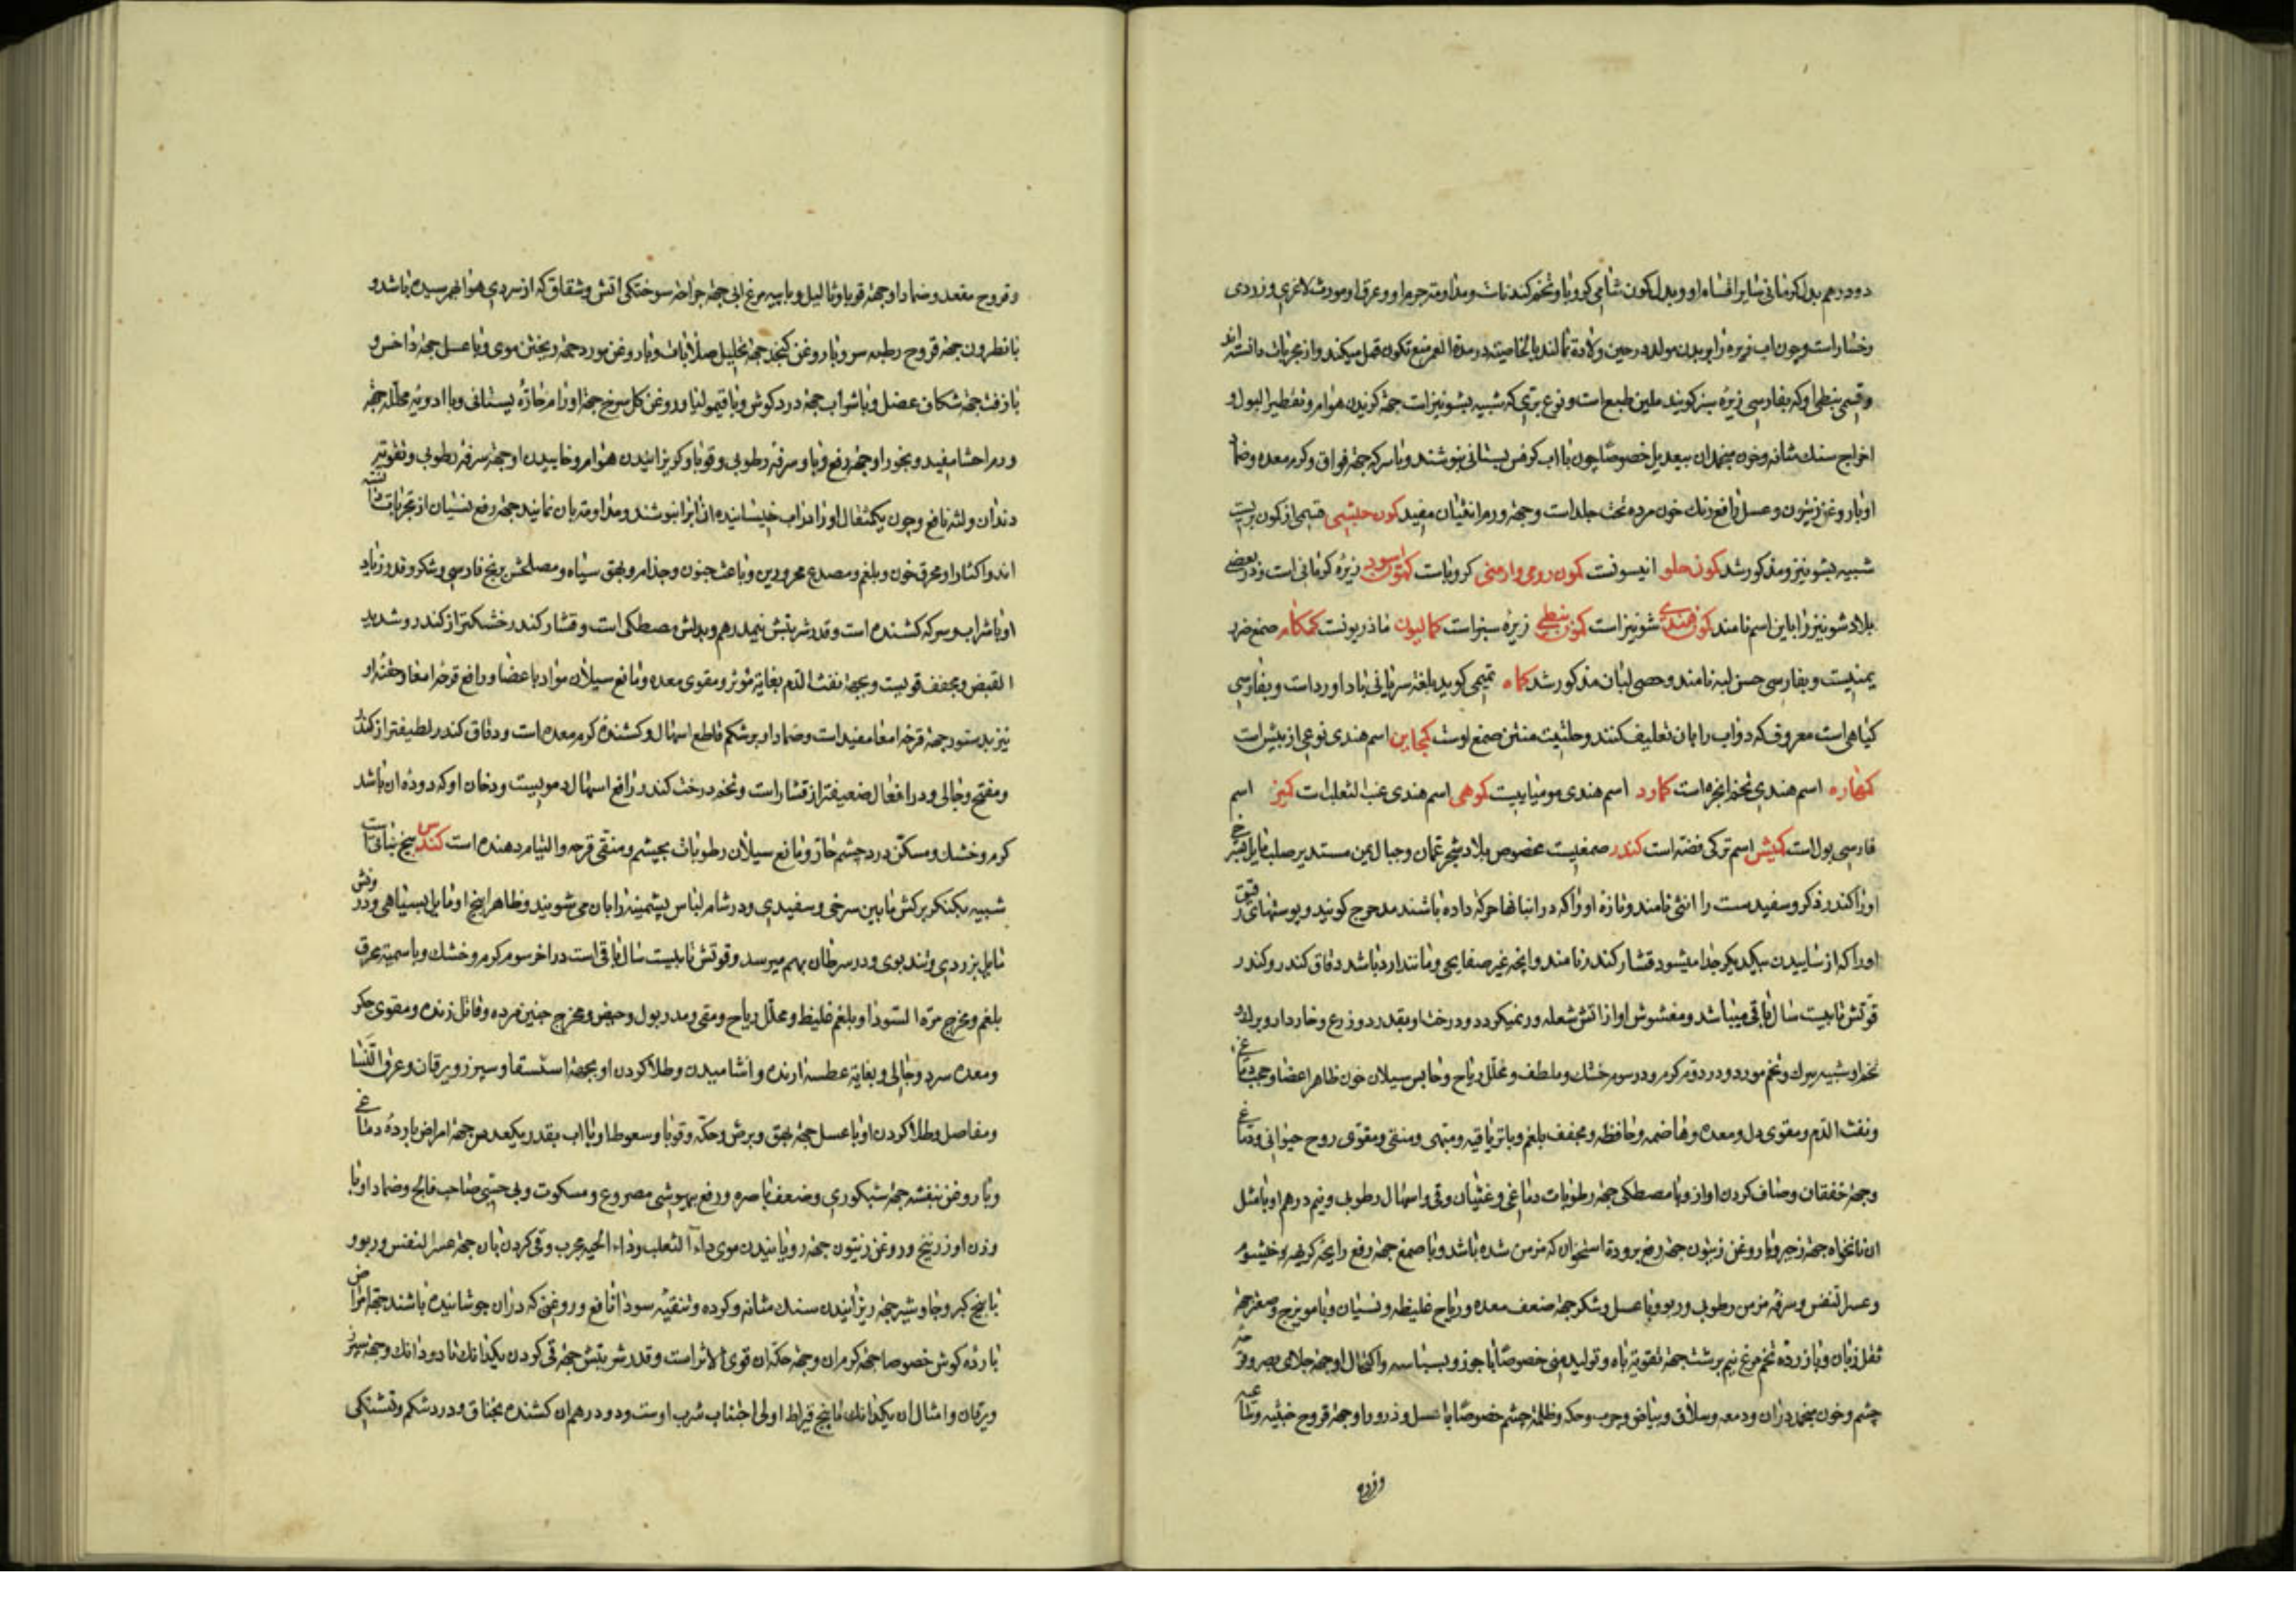 دو درهم بدل کرمانی سایر اقسام او و بدل کمون شامی کرویا و تخم کندناست و مداومت جرم او و عرق او مورث لاغری و زردی
رخسار است و چون آب زیره را بر بدن مولود در حین ولادة بمالند بالخاصیته در مدة العمر منع تکون قمل میکند و از مجربات دانسته اند
و قسم نبطی او که بفارسی زیرهٔ سبز گویند ملین طبع است و نوع بری که شبیه بشونیز است جهة گزیدن هوام و تقطیر البول و
اخراج سنک مثانه و خون منجمد ان بیعدیل خصوصا چون با اب کرفس بستانی بنوشند و با سرکه جهة فواق و کرم معده و ضماد
او با روغن زیتون و عسل رافع رنک خون مرده تحت جلد است و جهة ورم انثیان مفید کمون حبشی قسمی از کمون بریست
شبیه بشونیز و مذکور شد کمون حلو انیسونست کمون رومی و ارمنی کرویاست کمون اسود زیرهٔ کرمانی است و در بعضی
بلاد شونیز را باین اسم نامند کمون هندی شونیز است کمون نبطی زیرهٔ سبز است کمالیون ماذریونست کمکام صمغ ضرو
یمنیست و بفارسی حسن لبه نامند و حصی لبان مذکور شد کماه تمیمی کوید بلغة سریانی باداورد است و بفارسی
کیاهی است معروف که دواب را بان تعلیف کنند و حلتیت منتن صمغ اوست کنجاین اسم هندی نوعی از بیش است
کنهاره اسم هندی تخم انجره است کمارد اسم هندی مومیاییست کوهی اسم هندی عنب الثعلب است کمیز اسم
فارسی بول است کمش اسم ترکی فضه است کندر صمغیست مخصوص بلاد شجر عمان و جبال یمن مستدیر صلب مایل بسرخی
او را کندر ذکر و سفید سست را انثی نامند و تازه او را که در انبانها حرکة داده باشند مدحرج کویند و پوستهای رقیق
او را که از ساییدن بیکدیکر جدا میشود قشار کندر نامند و انچه غیر صفایحی و مانند ارد باشد دقاق کندر و کندر
قوتش تا بیست سال باقی میباشد و مغشوش او از اتش شعله ور نمیکردد و درخت او بقدر دو زرع و خاردار و برک و
تخم او شبیه ببرک و تخم مورد و در دوم کرم و در سوم خشک و ملطف و محلل ریاح و حابس سیلان خون ظاهر اعضا و حجب دماغی
و نفث الدم و مقوی دل و معده و هاضمه و حافظه و مجفف بلغم و با تریاقیه و مبهی و منقی و مقوی روح حیوانی و دماغی
و جهة خفقان و صاف کردن اواز و با مصطکی جهة رطوبات دماغی و غثیان و قی و اسهال رطوبی و نیم درهم او با مثل
ان نانخواه جهة زحیر و با روغن زیتون جهة رفع برودة استخوان که مزمن شده باشد و با صمغ جهة رفع رایحهٔ کریهه و خیشوم
و عسر النفس و سرفه مزمن رطوبی و ربو و با عسل و شکر جهة ضعف معده و ریاح غلیظه و نسیان و با مویزج و صعتر جهة
ثقل زبان و با زردهٔ تخم مرغ نیم برشت جهة تقویة باه و تولید منی خصوصا با جوز و بسباسه و اکتحال او جهة جلای بصر و قرحهٔ
چشم و خون منجمد در ان و دمعه و سلاق و بیاض و جرب و حکه و ظلمة چشم خصوصا با عسل و ذرور او جهة قروح خبیثه و ساعیه
و قروح
و قروح مقعد و ضماد او جهة قوبا و ثالیل و با پیه مرغ ابی جهة جراحة سوختکی اتش و شقاق که از سردی هوا بهم رسیده باشد و
با نطرون جهة قروح رطبه سر و با روغن کنجد جهة تحلیل صلابات و با روغن مورد جهة ریختن موی و با عسل جهة داخس و
با زفت جهة شکاف عضل و با شراب جهة درد کوش و با قیمولیا و روغن کل سرخ جهة اورام حارهٔ پستانی و با ادویهٔ محلله جهة
ورم احشا مفید و بخور او جهة رفع وبا و سرفهٔ رطوبی و قوبا و کریزانیدن هوام و خاییدن او جهة سرفهٔ رطوبی و تقویة
دندان و لثه نافع و چون یکمثقال او را در اب خیسانیده ان اب را بنوشند و مداومة بان نمایند جهة رفع نسیان از مجربات دانسته
اند و اکثار او محرق خون و بلغم و مصدع محرورین و باعث جنون و جذام و بهق سیاه و مصلحش برنج فارسی و شکر و قدر زیاد
او با شراب و سرکه کشنده است و قدر شربتش نیمدرهم و بدلش مصطکی است و قشار کندر خشکتر از کندر و شدید
القبض و مجفف قویست و جهة نفث الدم بغایة مؤثر و مقوی معده و مانع سیلان مواد باعضا و رافع قرحهٔ امعا و حقنهٔ او
نیز بدستور جهة قرحهٔ امعا مفید است و ضماد او بر شکم قاطع اسهال و کشندهٔ کرم معده است و دقاق کندر لطیفتر از کندر
و مفتح و جالی و در افعال ضعیفتر از قشار است و تخم درخت کندر رافع اسهال دمویست و دخان او که دودهٔ ان باشد
کرم و خشک و مسکن درد چشم حار و مانع سیلان رطوبات بچشم و منقی قرحه و التیام دهنده است کندس بیخ نباتیست
شبیه بکنکر برکش مابین سرخی و سفیدی و در شام لباس پشمینه را بان می‌شویند و ظاهر بیخ او مایل بسیاهی و درونش
مایل بزردی و تند بوی و در سرطان بهم میرسد و قوتش تا بیست سال باقی است در اخر سوم کرم و خشک و با سمیة محرق
بلغم و مخرج مرة السودا و بلغم غلیظ و محلل ریاح و مقی و مدر بول و حیض و مخرج جنین مرده و قاتل زنده و مقوی جکر
و معدهٔ سرد و جالی و بغایة عطسه ارنده و اشامیدن و طلا کردن او بجهة استسقا و سپرز و یرقان و عرق النسا
و مفاصل و طلا کردن او با عسل جهة بهق و برش و حکه و قوبا و سعوط او با اب بقدر یکعدس جهة امراض باردهٔ دماغی
و با روغن بنفشه جهة شبکوری و ضعف باصره و رفع بیهوشی مصروع و مسکوت و بی حسی صاحب فالج و ضماد او با
وزن او زرنیخ و روغن زیتون جهة رویانیدن موی داء الثعلب و داء الحیه مجرب و قی کردن بان جهة عسر النفس و ربو و
با بیخ کبر و جاوشیر جهة ریزانیدن سنک مثانه و کرده و تنقیهٔ سودا نافع و روغنی که در ان جوشانیده باشند جهة امراض
باردهٔ کوش خصوصا جهة کرم ان و جهة حکهٔ ان قوی الاثر است و قدر شربتش جهة قی کردن یکدانک تا دو دانک و جهة سپرز
و یرقان و امثال ان یکدانک تا پنج قیراط اولی اجتناب شرب اوست و دو درهم ان کشنده بخناق و درد شکم و تشنکی